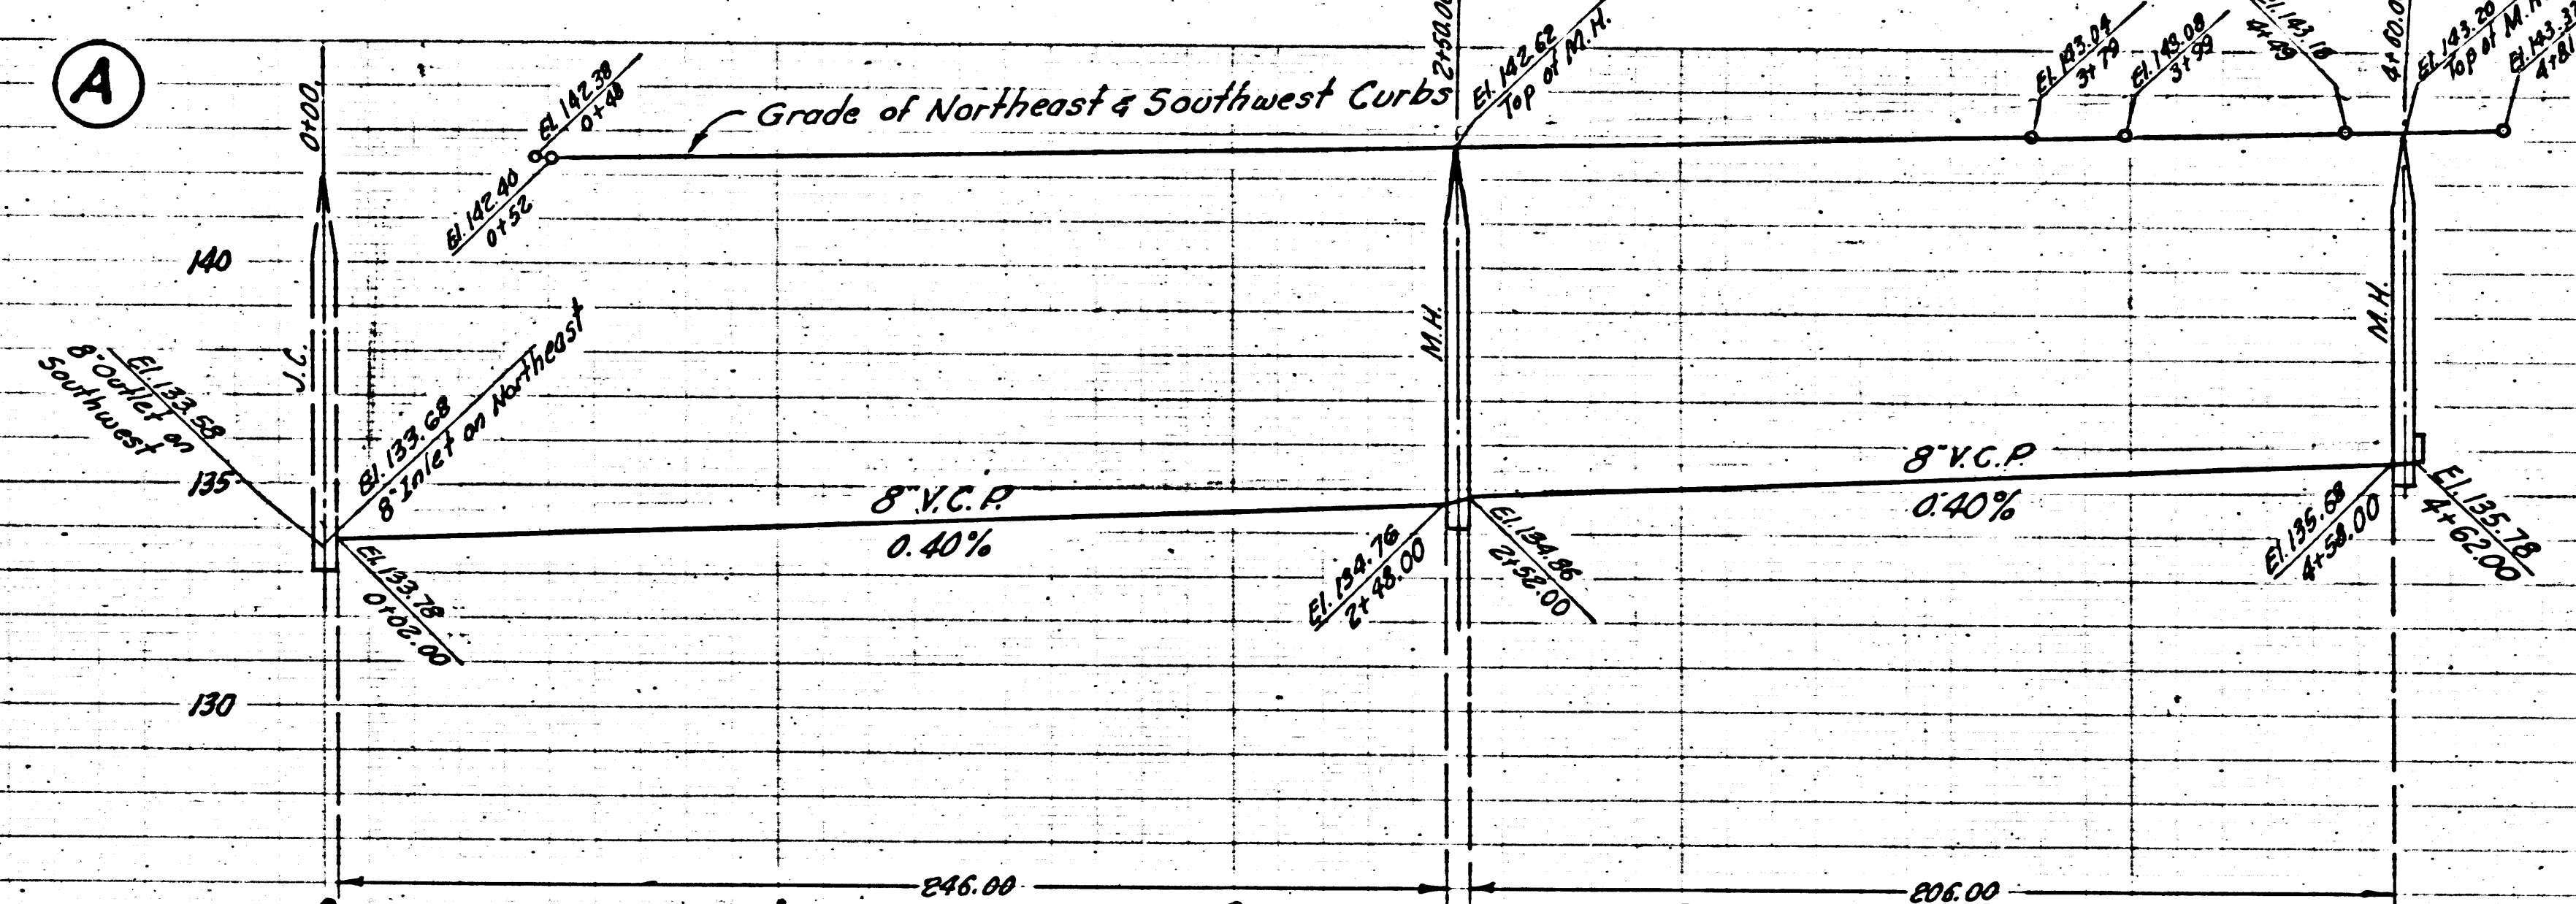 A
0+00
El. 142.38
0+48
El. 142.40
0+52
Grade of Northeast & Southwest Curbs
2+50.00
El. 142.62
Top of M.H.
El. 143.04
3+79
El. 143.08
3+99
El. 143.18
4+49
El. 143.20
Top of M.H.
4+81
140
135
130
J.C.
El. 133.58
8" Outlet on
Southwest
El. 133.68
8" Inlet on Northeast
El. 133.78
0+02.00
8" V.C.P.
0.40%
M.H.
El. 134.76
2+48.00
El. 134.86
2+52.00
8" V.C.P.
0.40%
M.H.
El. 135.68
4+58.00
El. 135.78
4+62.00
246.00
206.00